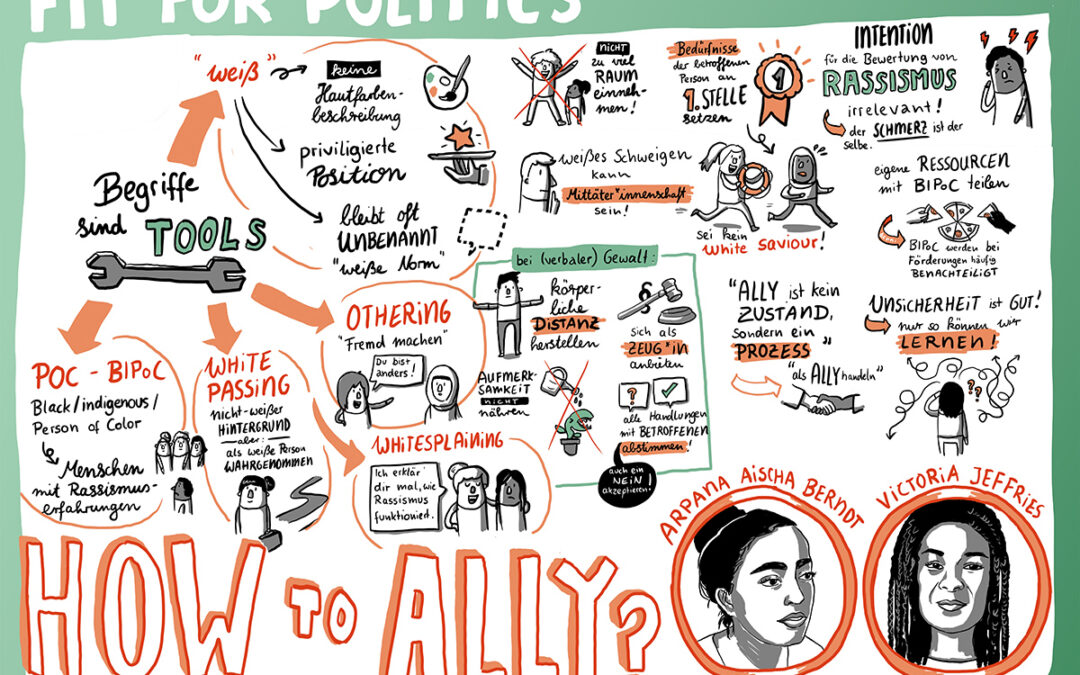 FIT FOR POLITICS
"weiß"
keine
Hautfarben-
beschreibung
priviligierte
Position
bleibt oft
UNBENANNT
"weiße Norm"
Begriffe
sind TOOLS
POC - BIPoC
Black/indigenous/
Person of Color
Menschen
mit Rassismus-
erfahrungen
WHITE
PASSING
nicht-weißer
HINTERGRUND
aber:
als weiße Person
WAHRGENOMMEN
OTHERING
"Fremd machen"
Du bist
anders!
WHITESPLAINING
Ich erklär
dir mal, wie
Rassismus
funktioniert.
NICHT
zu viel
RAUM
einneh-
men!
Bedürfnisse
der betroffenen
Person an
1. STELLE
setzen
1
INTENTION
für die Bewertung von
RASSISMUS
irrelevant!
der SCHMERZ ist der
selbe.
weißes Schweigen
kann
Mittäter*innenschaft
sein!
sei kein
white saviour!
eigene RESSOURCEN
mit BIPoC teilen
BIPoC werden bei
Förderungen häufig
BENACHTEILIGT
bei (verbaler) Gewalt:
körper-
liche
DISTANZ
herstellen
AUFMERK-
SAMKEIT
NICHT
nähren
§
sich als
ZEUG*IN
anbieten
?
alle Handlungen
mit BETROFFENEN
abstimmen!
auch ein
NEIN
akzeptieren.
"ALLY ist kein
ZUSTAND,
sondern ein
PROZESS"
"als ALLY handeln"
UNSICHERHEIT ist GUT!
nur so können wir
LERNEN!
? ? ?
HOW TO ALLY?
ARPANA AISCHA BERNDT
VICTORIA JEFFRIES